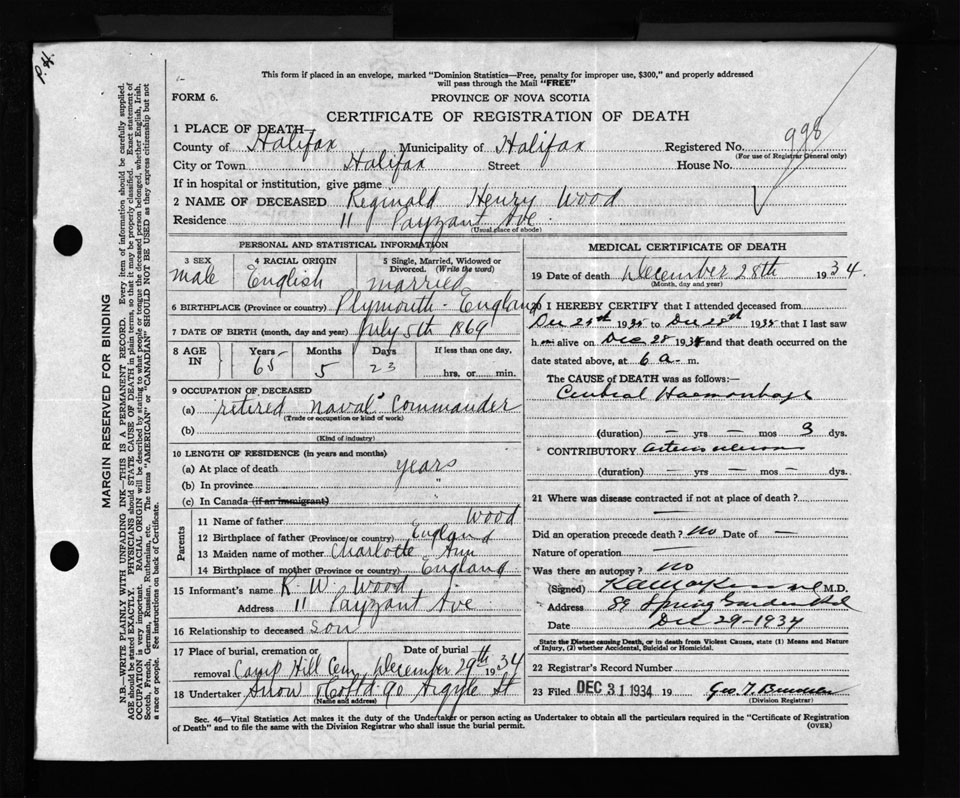 P. H.
This form if placed in an envelope, marked "Dominion Statistics—Free, penalty for improper use, $300," and properly addressed
will pass through the Mail "FREE"
FORM 6.
PROVINCE OF NOVA SCOTIA
CERTIFICATE OF REGISTRATION OF DEATH
998
1 PLACE OF DEATH—
County of Halifax Municipality of Halifax Registered No.
(For use of Registrar General only)
City or Town Halifax Street House No.
If in hospital or institution, give name
2 NAME OF DECEASED Reginald Henry Wood
Residence 11 Payzant Ave.
(Usual place of abode)
PERSONAL AND STATISTICAL INFORMATION
3 SEX 4 RACIAL ORIGIN 5 Single, Married, Widowed or
Divorced. (Write the word)
male English married
6 BIRTHPLACE (Province or country) Plymouth - England
7 DATE OF BIRTH (month, day and year) July 5th 1869
8 AGE IN Years Months Days If less than one day,
65 5 23 hrs. or min.
9 OCCUPATION OF DECEASED
(a) retired naval Commander
(Trade or occupation or kind of work)
(b)
(Kind of industry)
10 LENGTH OF RESIDENCE (in years and months)
(a) At place of death years
(b) In province "
(c) In Canada (if an immigrant) "
Parents
11 Name of father Wood
12 Birthplace of father (Province/or country) England
13 Maiden name of mother Charlotte Ann
14 Birthplace of mother (Province or country) England
15 Informant's name R. W. Wood
Address 11 Payzant Ave
16 Relationship to deceased son
17 Place of burial, cremation or Date of burial
removal Camp Hill Cem, December 29th 1934
18 Undertaker Snow & Co Ltd 90 Argyle St
(Name and address)
MEDICAL CERTIFICATE OF DEATH
19 Date of death December 28th 1934.
(Month, day and year)
20 I HEREBY CERTIFY that I attended deceased from
Dec 1935 to Dec 28th 1935 that I last saw
h alive on Dec 28 193 and that death occurred on the
date stated above, at 6 a. m.
The CAUSE of DEATH was as follows:—
Haemorrhage
(duration) — yrs — mos 3 dys.
CONTRIBUTORY
(duration) — yrs — mos — dys.
21 Where was disease contracted if not at place of death?
—
Did an operation precede death? no Date of —
Nature of operation —
Was there an autopsy? no
(Signed) M.D.
Address 89 Spring Garden Rd
Date Dec 29-1934
State the Disease causing Death, or in death from Violent Causes, state (1) Means and Nature
of Injury, (2) whether Accidental, Suicidal or Homicidal.
22 Registrar's Record Number
23 Filed DEC 31 1934 19 Geo.
(Division Registrar)
Sec. 46—Vital Statistics Act makes it the duty of the Undertaker or person acting as Undertaker to obtain all the particulars required in the "Certificate of Registration
of Death" and to file the same with the Division Registrar who shall issue the burial permit. (OVER)
MARGIN RESERVED FOR BINDING
N.B.—WRITE PLAINLY WITH UNFADING INK—THIS IS A PERMANENT RECORD. Every item of information should be carefully supplied.
AGE should be stated EXACTLY. PHYSICIANS should STATE CAUSE OF DEATH in plain terms, so that it may be properly classified. Exact statement of
OCCUPATION is very important. RACIAL ORIGIN will be described by stating to what people or tongue the deceased person belonged, whether English, Irish,
Scotch, French, German, Russian, Ruthenian, etc. The terms "AMERICAN" or "CANADIAN" SHOULD NOT BE USED as they express citizenship but not
a race or people. See instructions on back of Certificate.